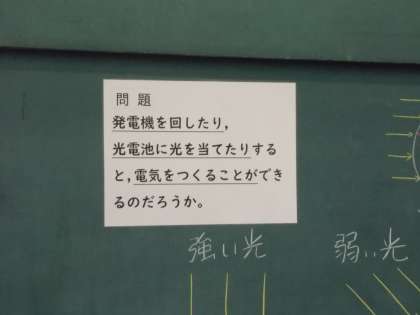 問題
発電機を回したり，
光電池に光を当てたりする
と，電気をつくることができ
るのだろうか。
強い光
弱い光